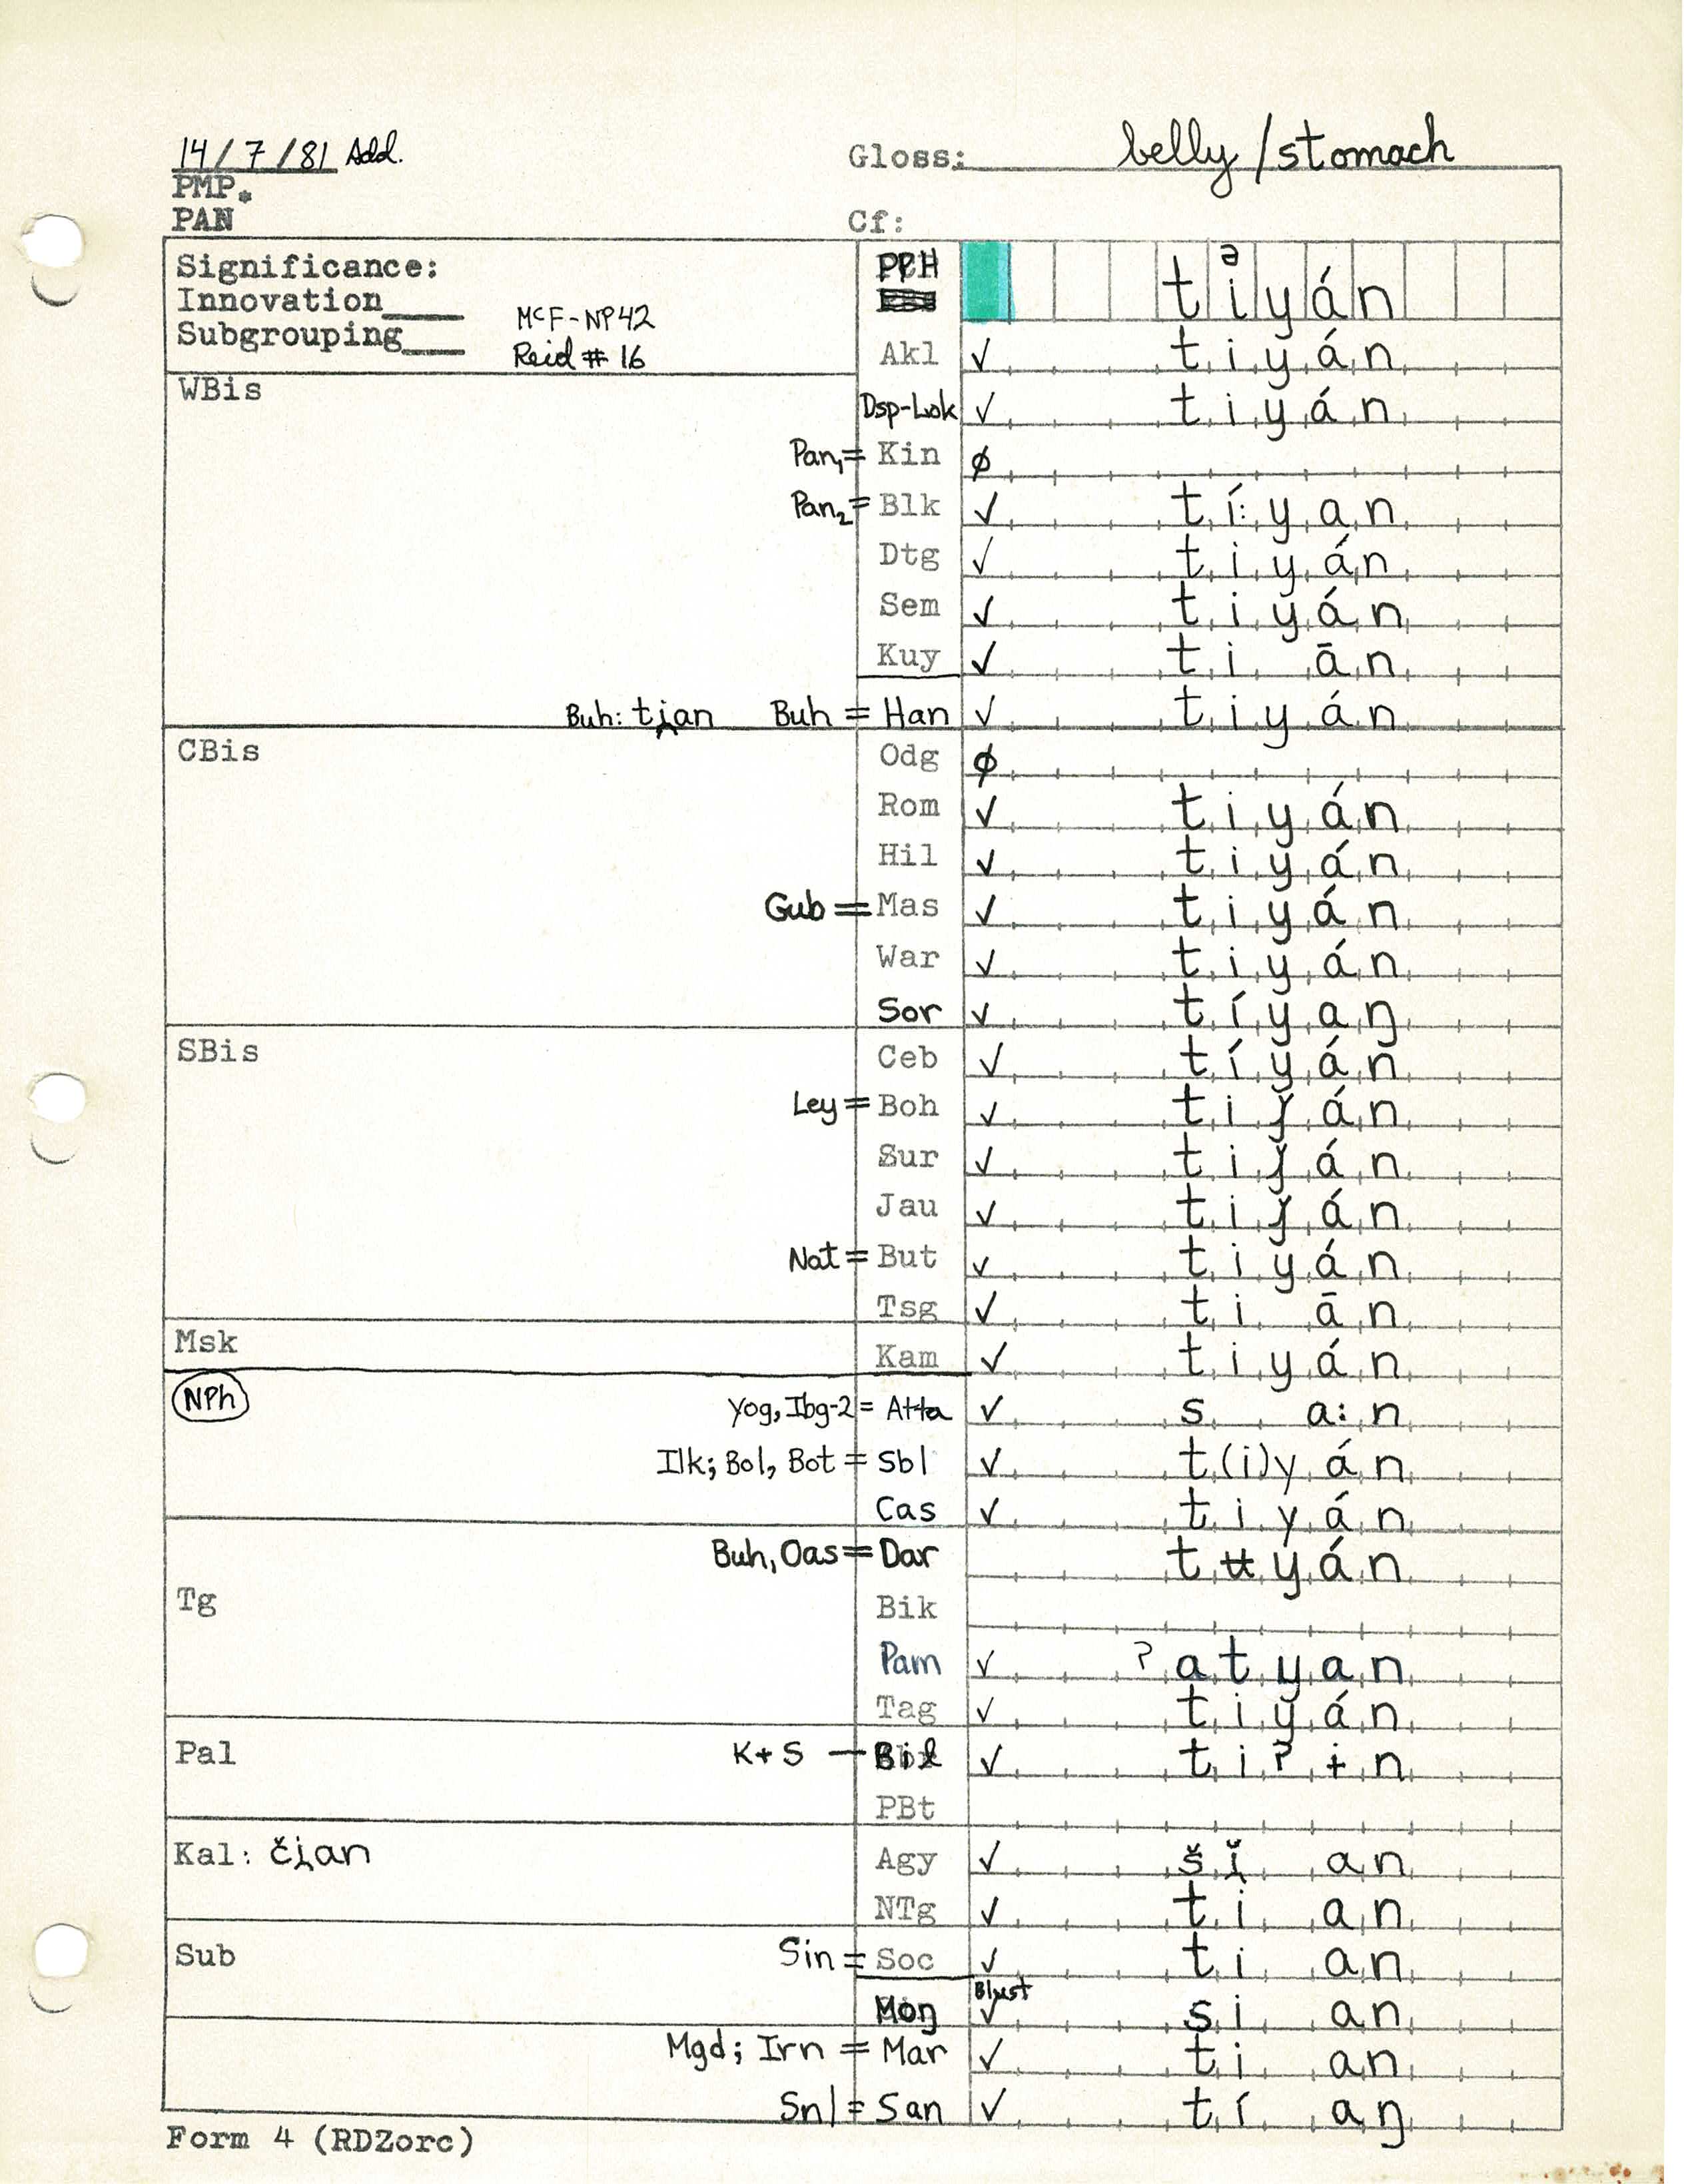 14/7/81 Add. Gloss: belly/stomach
PMP.
PAN Cf:
Significance: PPH tə̇iyán
Innovation____ McF-NP42
Subgrouping____ Reid # 16
Akl ✓ tiyán
WBis
Dsp-Lok ✓ tiyán
Pan₁= Kin ∅
Pan₂= Blk ✓ tí:yan
Dtg ✓ tiyán
Sem ✓ tiyán
Kuy ✓ ti ān
Buh: ti̯an Buh = Han ✓ tiyán
CBis Odg ∅
Rom ✓ tiyán
Hil ✓ tiyán
Gub = Mas ✓ tiyán
War ✓ tiyán
Sor ✓ tíyaŋ
SBis Ceb ✓ tíyán
Ley = Boh ✓ tiɉán
Sur ✓ tiɉán
Jau ✓ tiɉán
Nat = But ✓ tiyán
Tsg ✓ ti ān
Msk Kam ✓ tiyán
NPh Yog, Ibg-2 = Atta ✓ s a:n
Ilk; Bol, Bot = Sbl ✓ t(i)yán
Cas ✓ tiyán
Buh, Oas = Dar tʉyán
Tg Bik
Pam ✓ ʔatyan
Tag ✓ tiyán
Pal K+S — Bil ✓ tiʔɨn
PBt
Kal: či̯an Agy ✓ šǐ̯ an
NTg ✓ ti an
Sub Sin = Soc ✓ ti an
Blust
Moŋ ✓ si an
Mgd; Irn = Mar ✓ ti an
Snl = San ✓ tí aŋ
Form 4 (RDZorc)